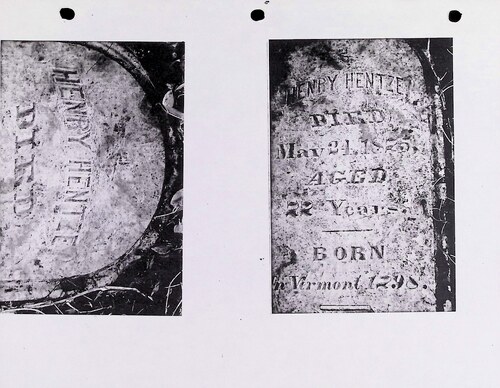 HENRY HENTZE
DIED
HENRY HENTZE
DIED
May 24, 1875.
AGED
77 Years.
BORN
in Vermont, 1798.